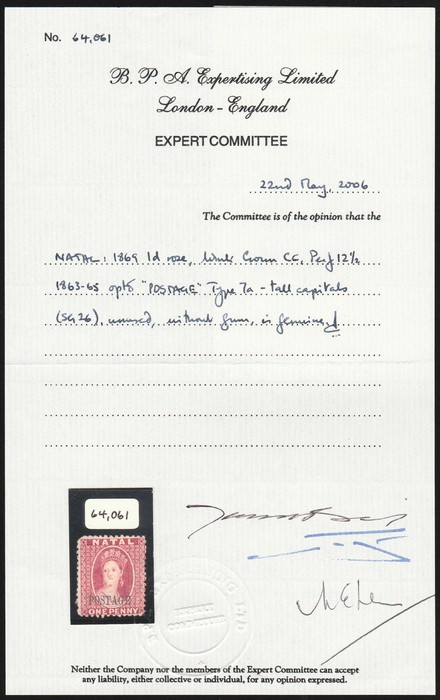 No. 64,061
B. P. A. Expertising Limited
London - England
EXPERT COMMITTEE
22nd May, 2006
The Committee is of the opinion that the
NATAL: 1869 1d rose, Wmk Crown CC, Perf 12½
1863-65 optd "POSTAGE" Type 7a - tall capitals
(SG26), unused, without gum, is genuine.
64,061
NATAL
POSTAGE
ONE PENNY
Neither the Company nor the members of the Expert Committee can accept
any liability, either collective or individual, for any opinion expressed.